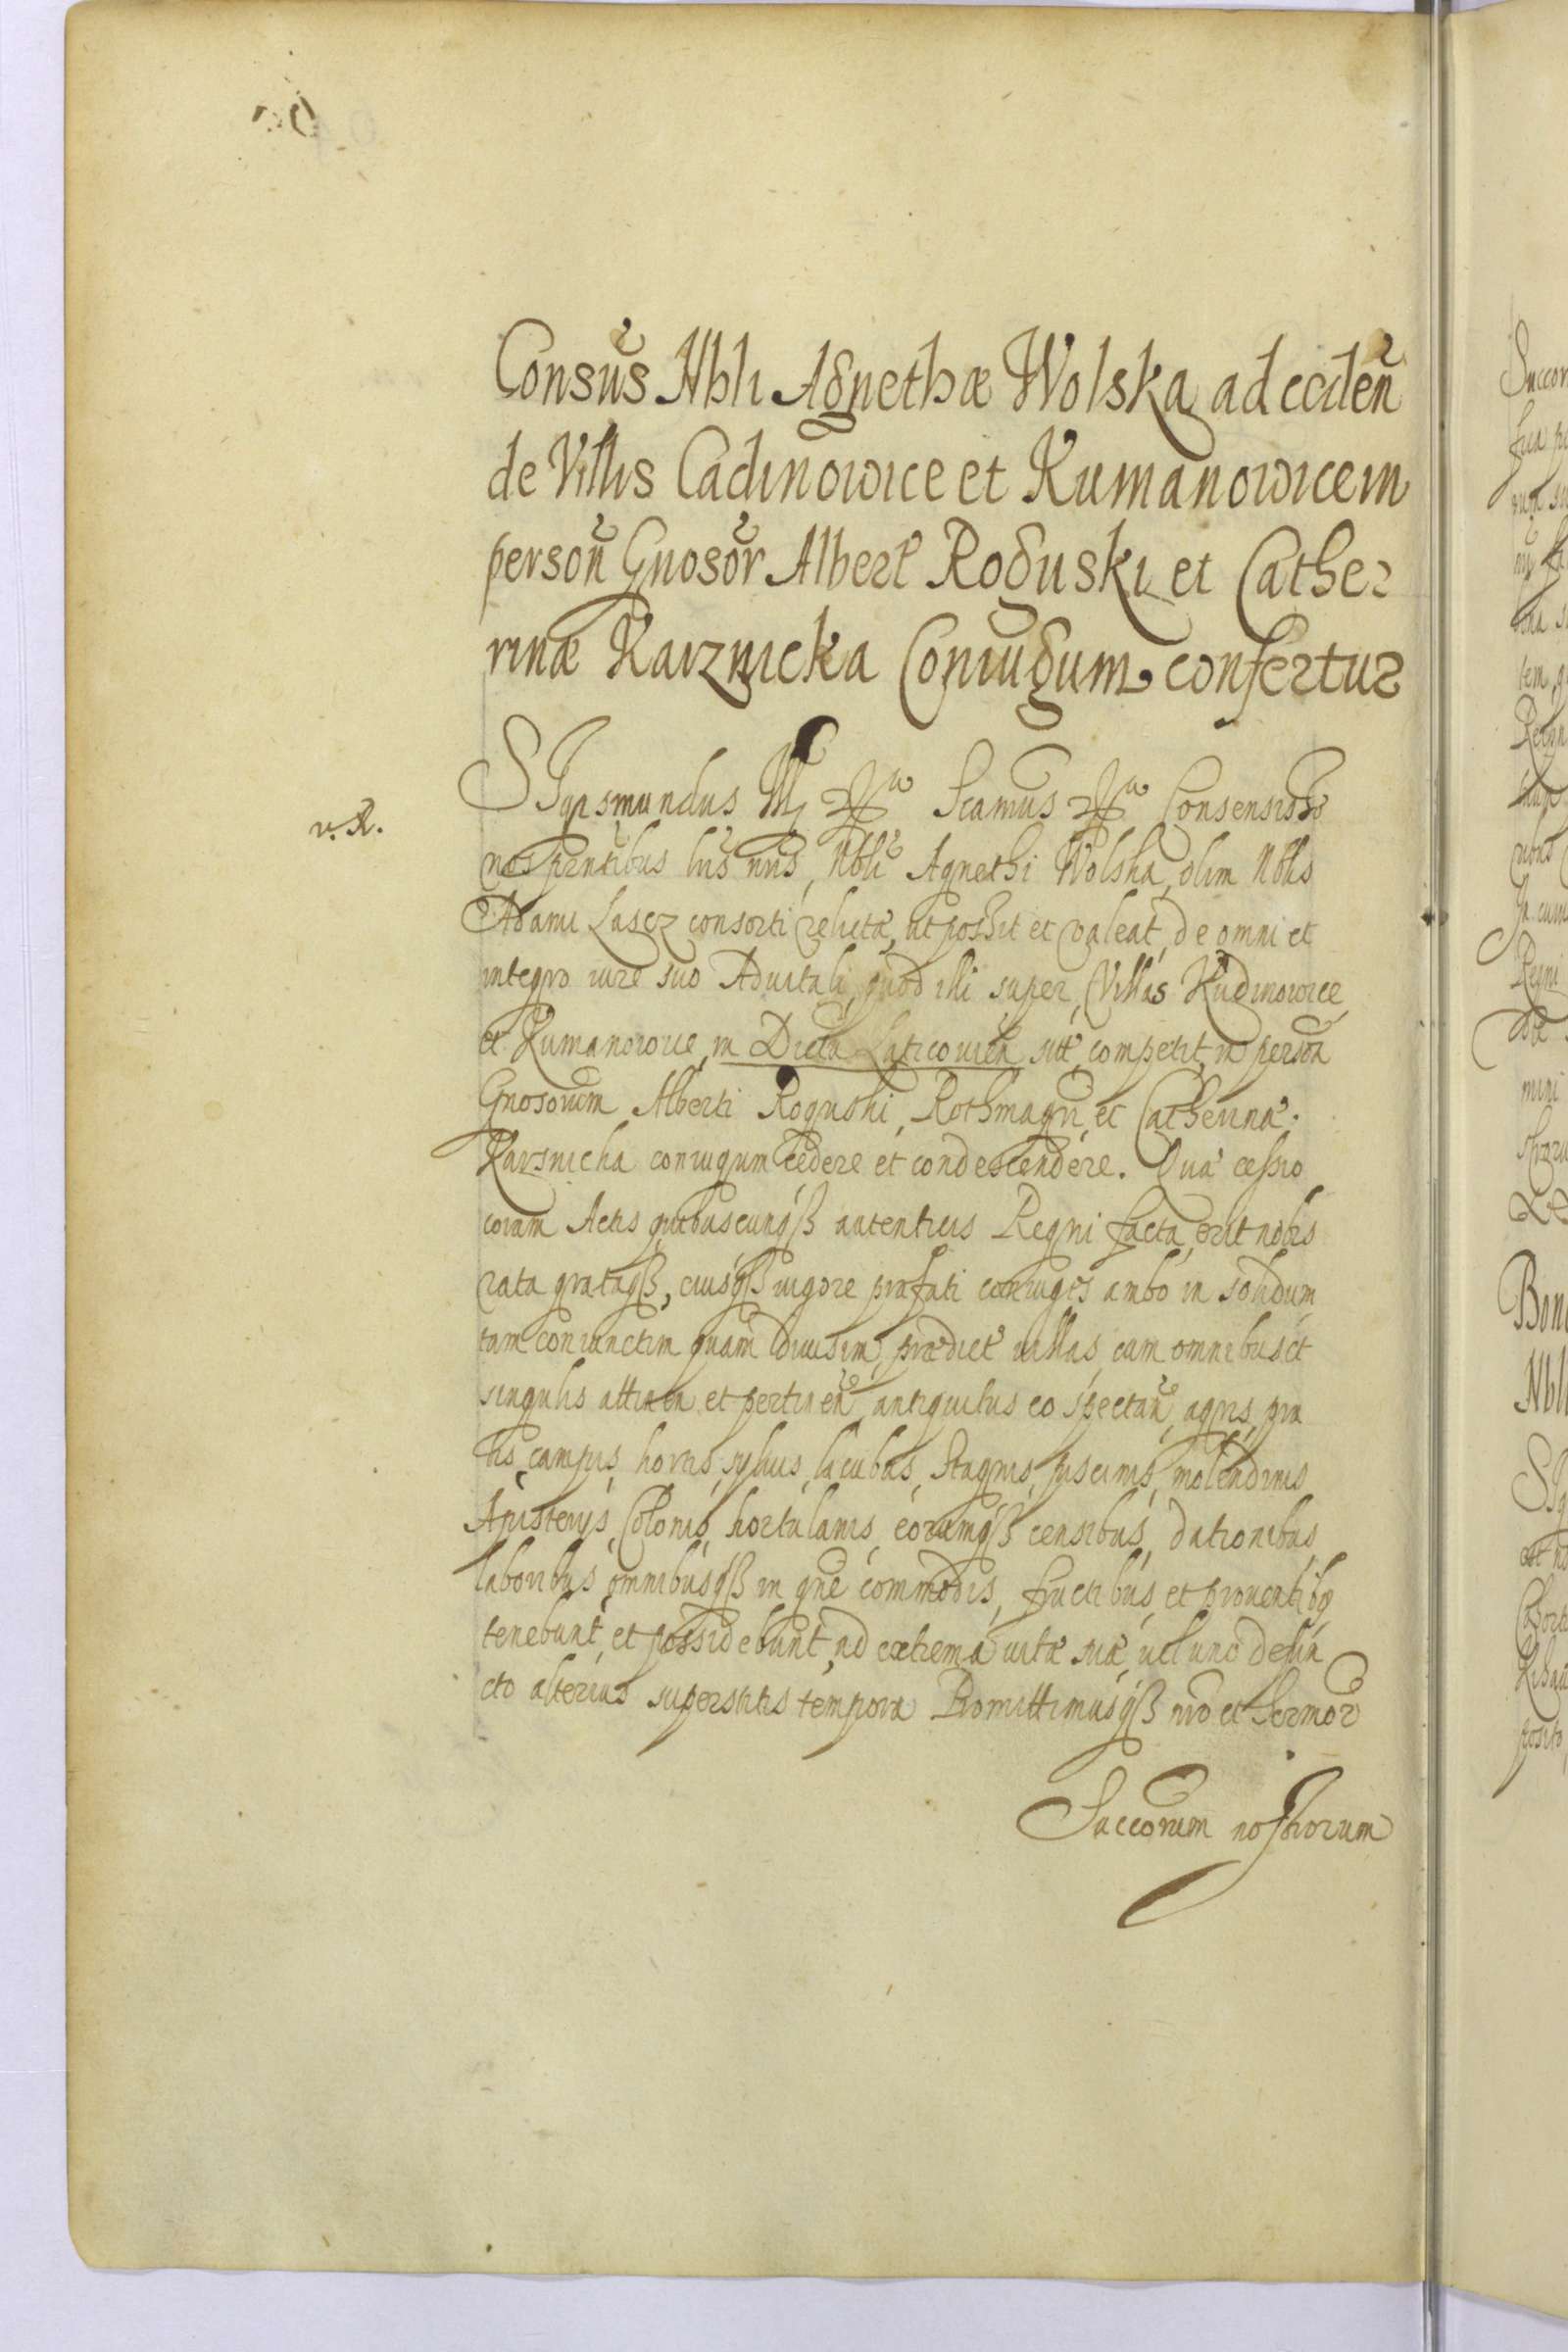 Consũs Nbli Agnethæ Wolska ad cedeñ
de Villis Cadinowice et Kumanowice in
persoñ Gnosor̃ Albert Roguski et Cathe-
rinæ Karznicka Coniugum confertur
v. R.
SIgismundus III Scamus Consensisse
nos pñtibus lr̃is nr̃is, Nbli Agnethi Wolska, olim Nblis
Adami Lascz consorti relictæ, ut possit et valeat, de omni et
integro iure suo Aduitali, quod illi super Villas Kudinowice
et Kumanowice, in Dictu Laticouien sitt competit, in person
Gnosorum Alberti Roguski, Rothmagri, et Catherinæ
Karsnicka coniugum cedere et condescendere. Quæ cessio
coram Actis quibuscunqß autenticis Regni facta, erit nobis
rata grataqß, cuiusqß uigore præfati coniuges ambo in solidum
tam coniunctim quam diuisim, prædict uillas, cum omnibus et
singulis attinen et pertineñ, antiquitus eo spectañ, agris, pra
tis, campis, hortis, syluis, lacubus, Stagnis, piscinis, molendinis
Apisterijs, Colonis, hortulanis, eorumqß censibus, dationibus,
laboribus, omnibusqß in gñe commodis, fructibus, et prouentibq
tenebunt, et possidebunt, ad extrema uitæ suæ, uel uno defun
cto alterius superstitis tempora Promittimusqß nro et Sermor
Succorum nostrorum